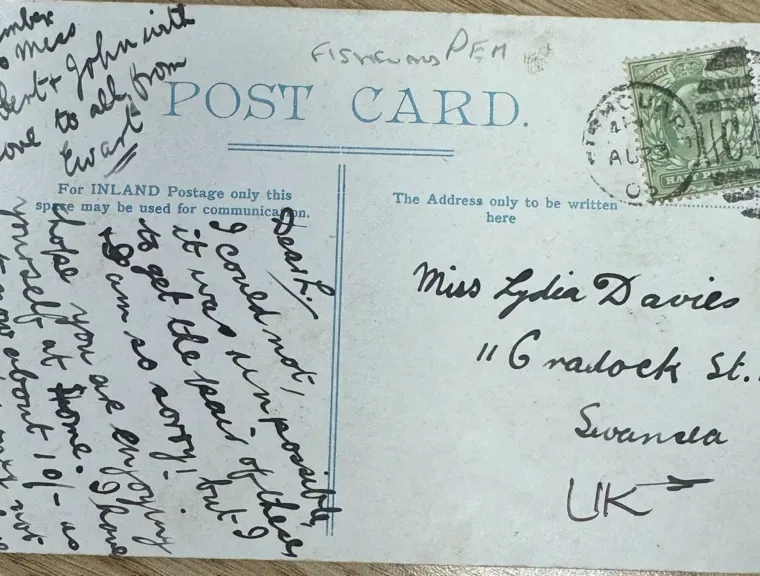 FISHGUARD PEM
POST CARD.
For INLAND Postage only this
space may be used for communication.
The Address only to be written
here
Miss
John with
to all from
Ewart
Dear L.
I could not,
it was un possible,
to get the pair of these
I am so sorry! but I
hope you are enjoying
yourself at home. I have
now about 10/- as
not
Miss Lydia Davies
11 Cradock St.
Swansea
UK
AU 23
HALFPENNY